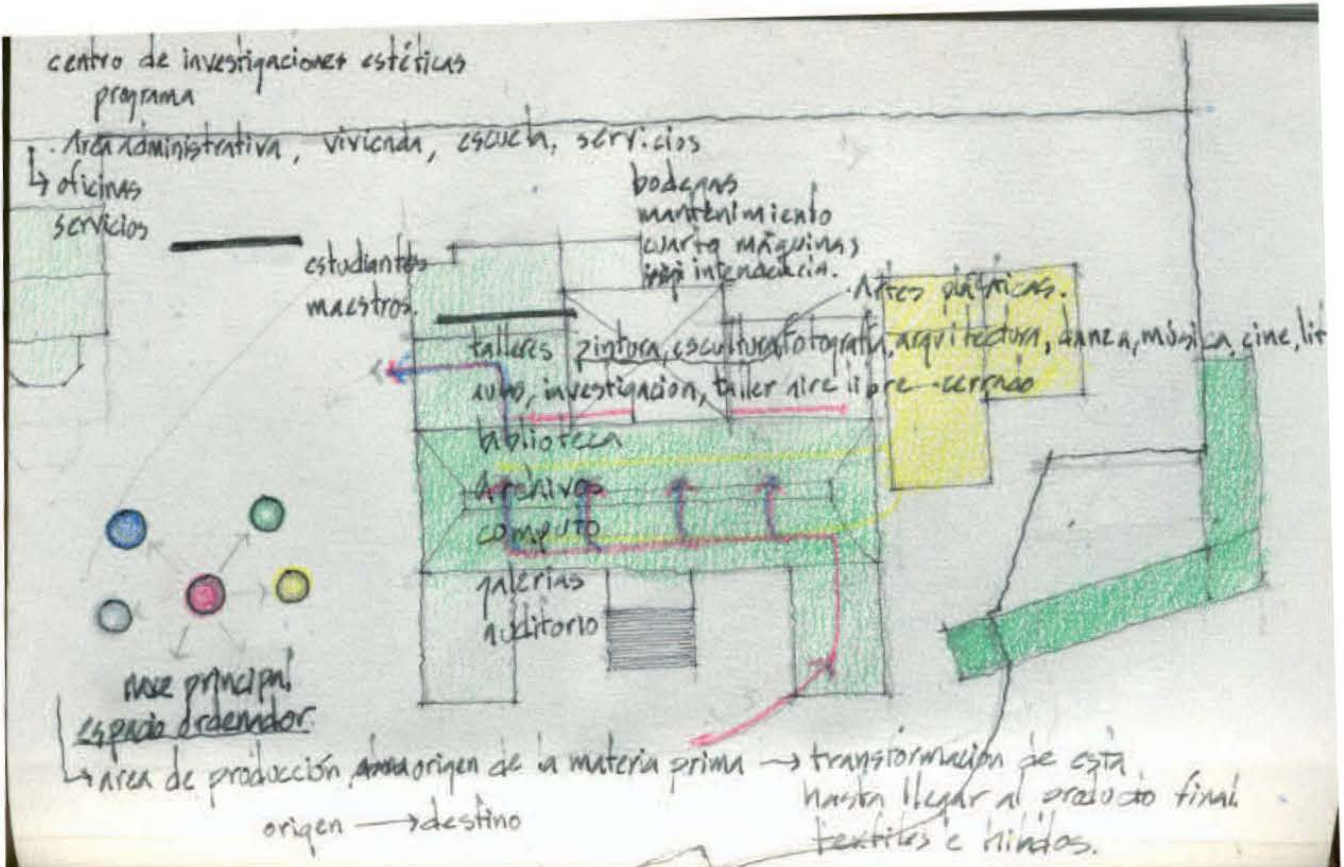 centro de investigaciones estéticas
programa
. Area administrativa, vivienda, escuela, servicios
↳ oficinas
servicios
bodegas
mantenimiento
cuarto máquinas
intendencia.
estudiantes
maestros.
Artes plásticas.
talleres pintura, escultura, fotografía, arquitectura, danza, música, cine, lit
investigación, taller aire libre - cerrado
biblioteca
Archivos
computo
galerías
auditorio
nave principal
espacio ordenador
↳ area de producción, origen de la materia prima → transformación de esta
hasta llegar al producto final
origen → destino
textiles e hilados.